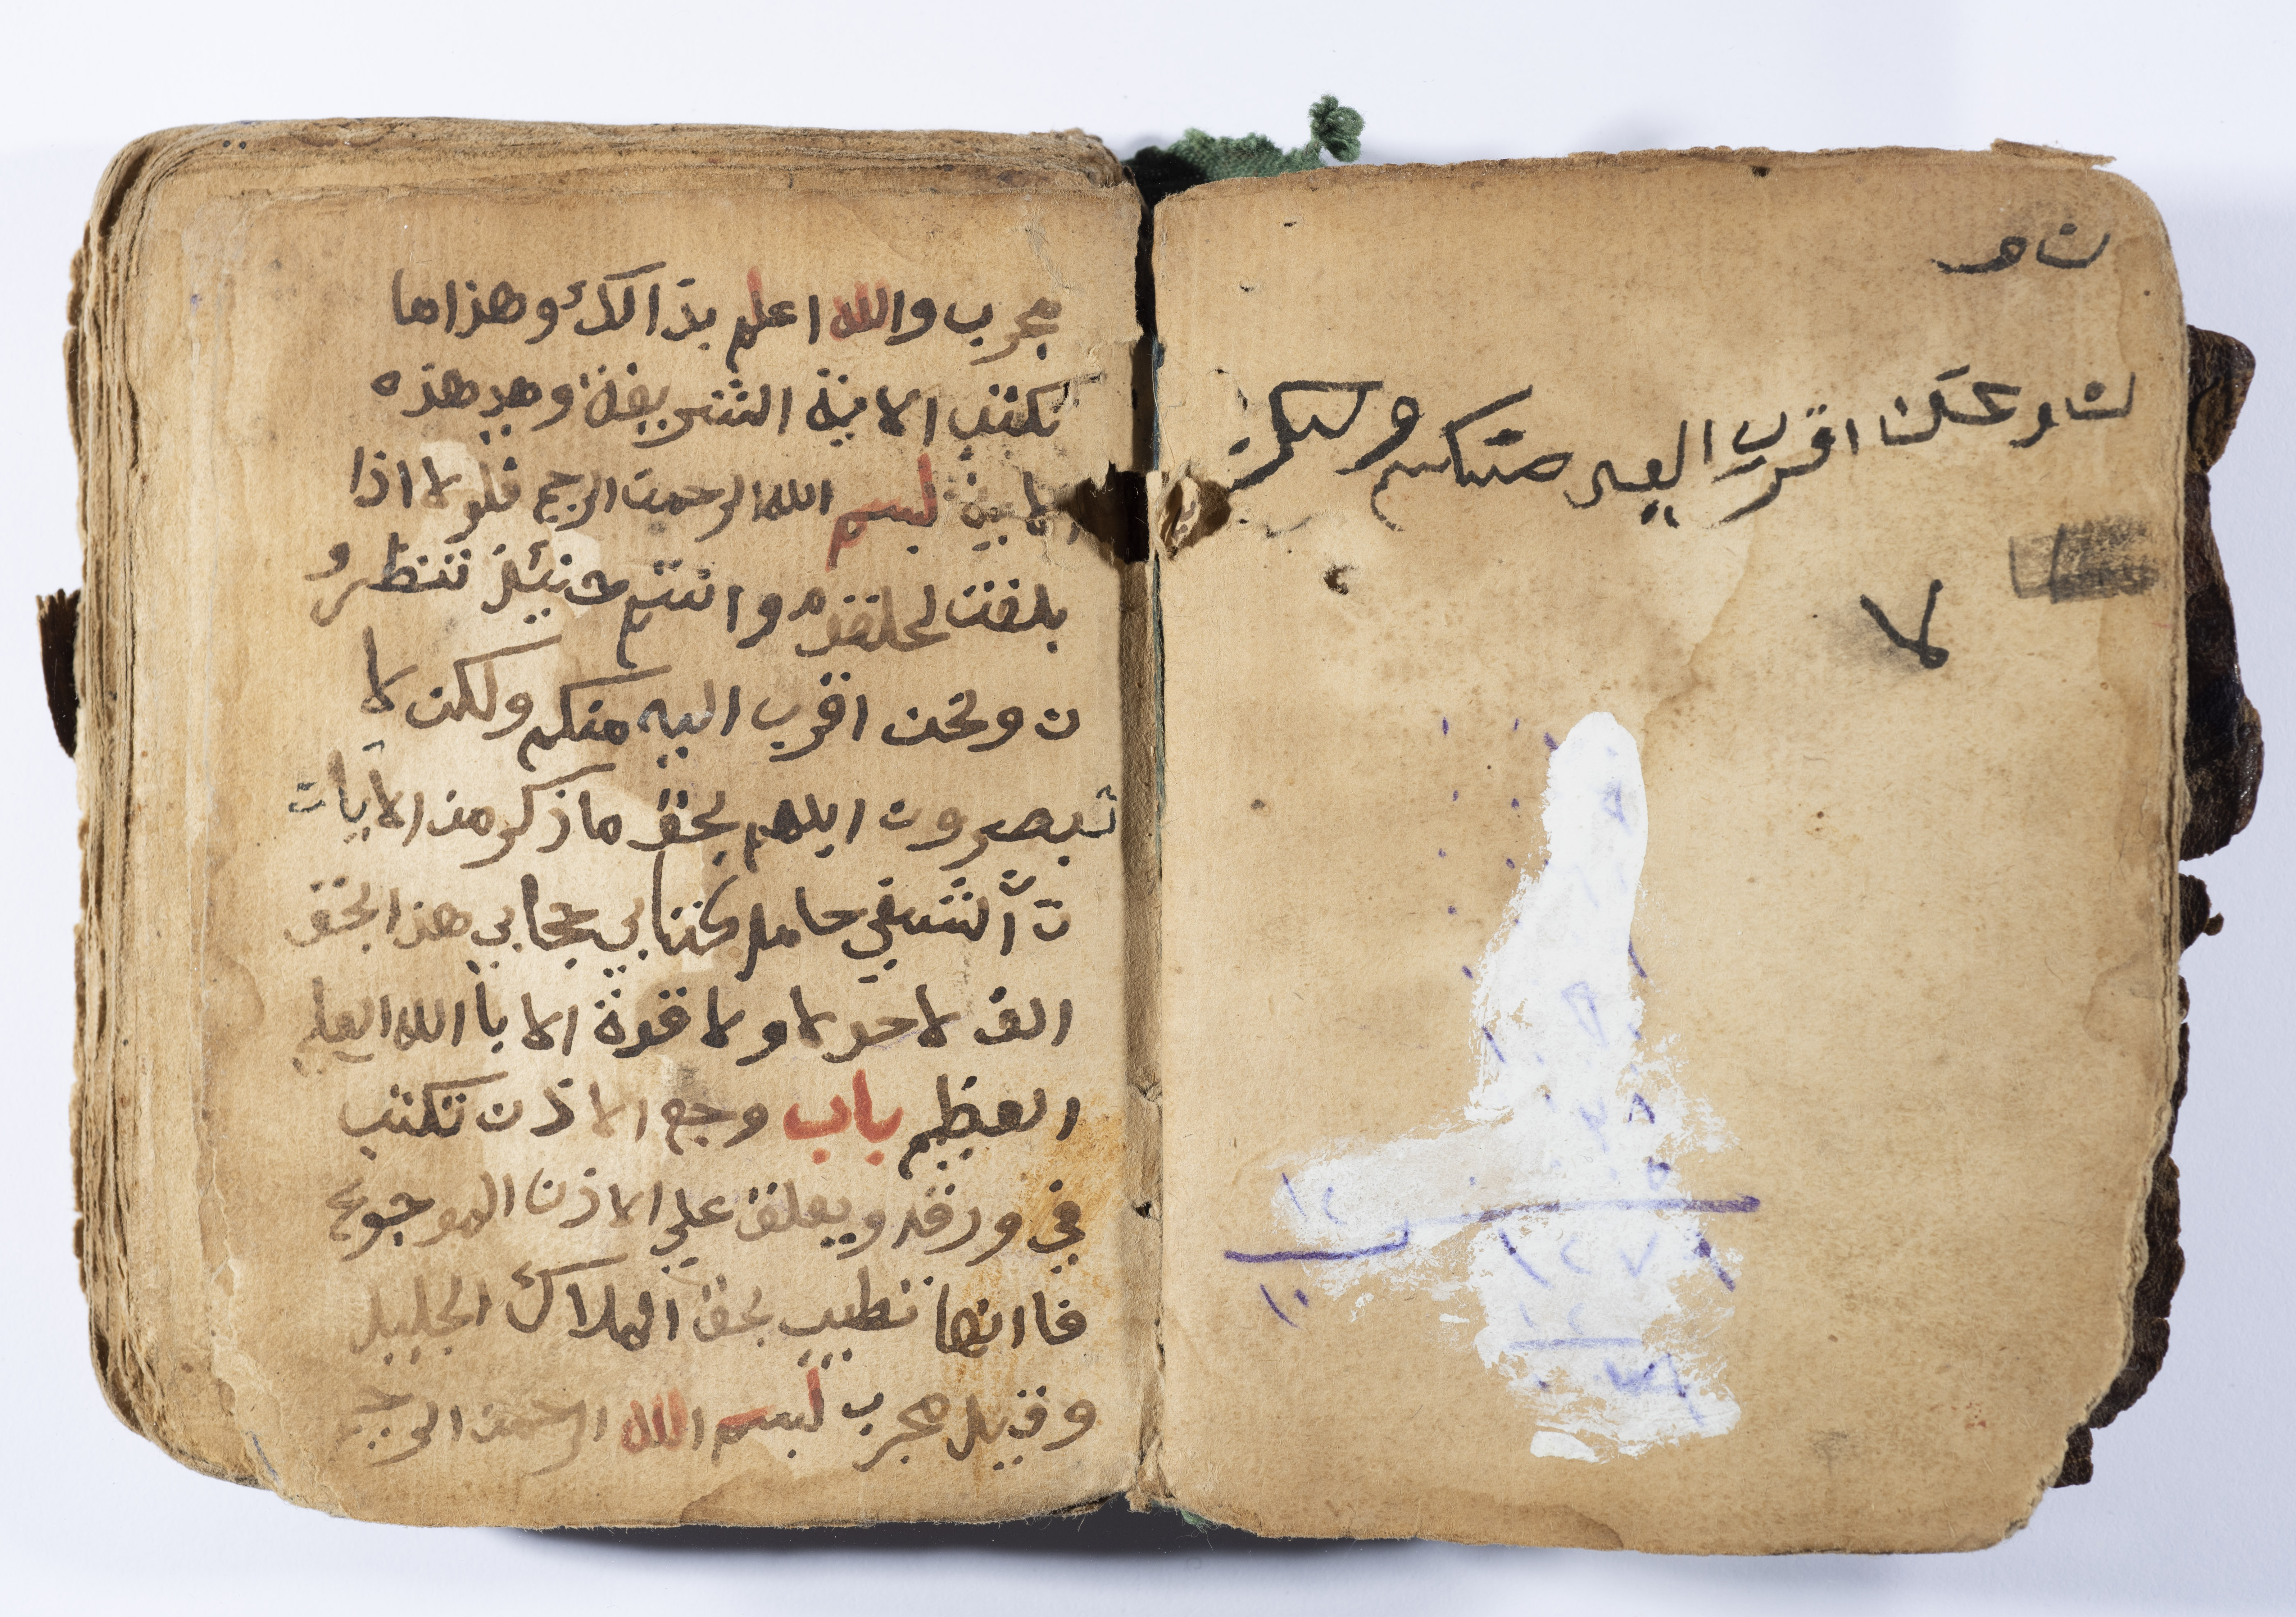 ن و
ن و نحن اقرب اليه منكم ولكن
لا
مجرب والله اعلم بذالك وهذاما
تكتب الاية الشريفة وهي هذه
الاية بسم الله الرحمن الرحيم فلولا اذا
بلغت الحلقوم وانتم حنيئذ تنظرو
ن ونحن اقرب اليه منكم ولكن لا
تبصرون اللهم بحق ما ذكر من الايات
ان تشفي حامل كتابي حجابي هذا بحق
الف لاحولا ولا قوة الا باالله العلي
العظيم باب وجع الاذن تكتب
في ورقه ويعلق علي الاذن الموجوع
فاانها تطيب بحق الملاك الجليل
وقيل مجرب بسم الله الرحمن الرحيم